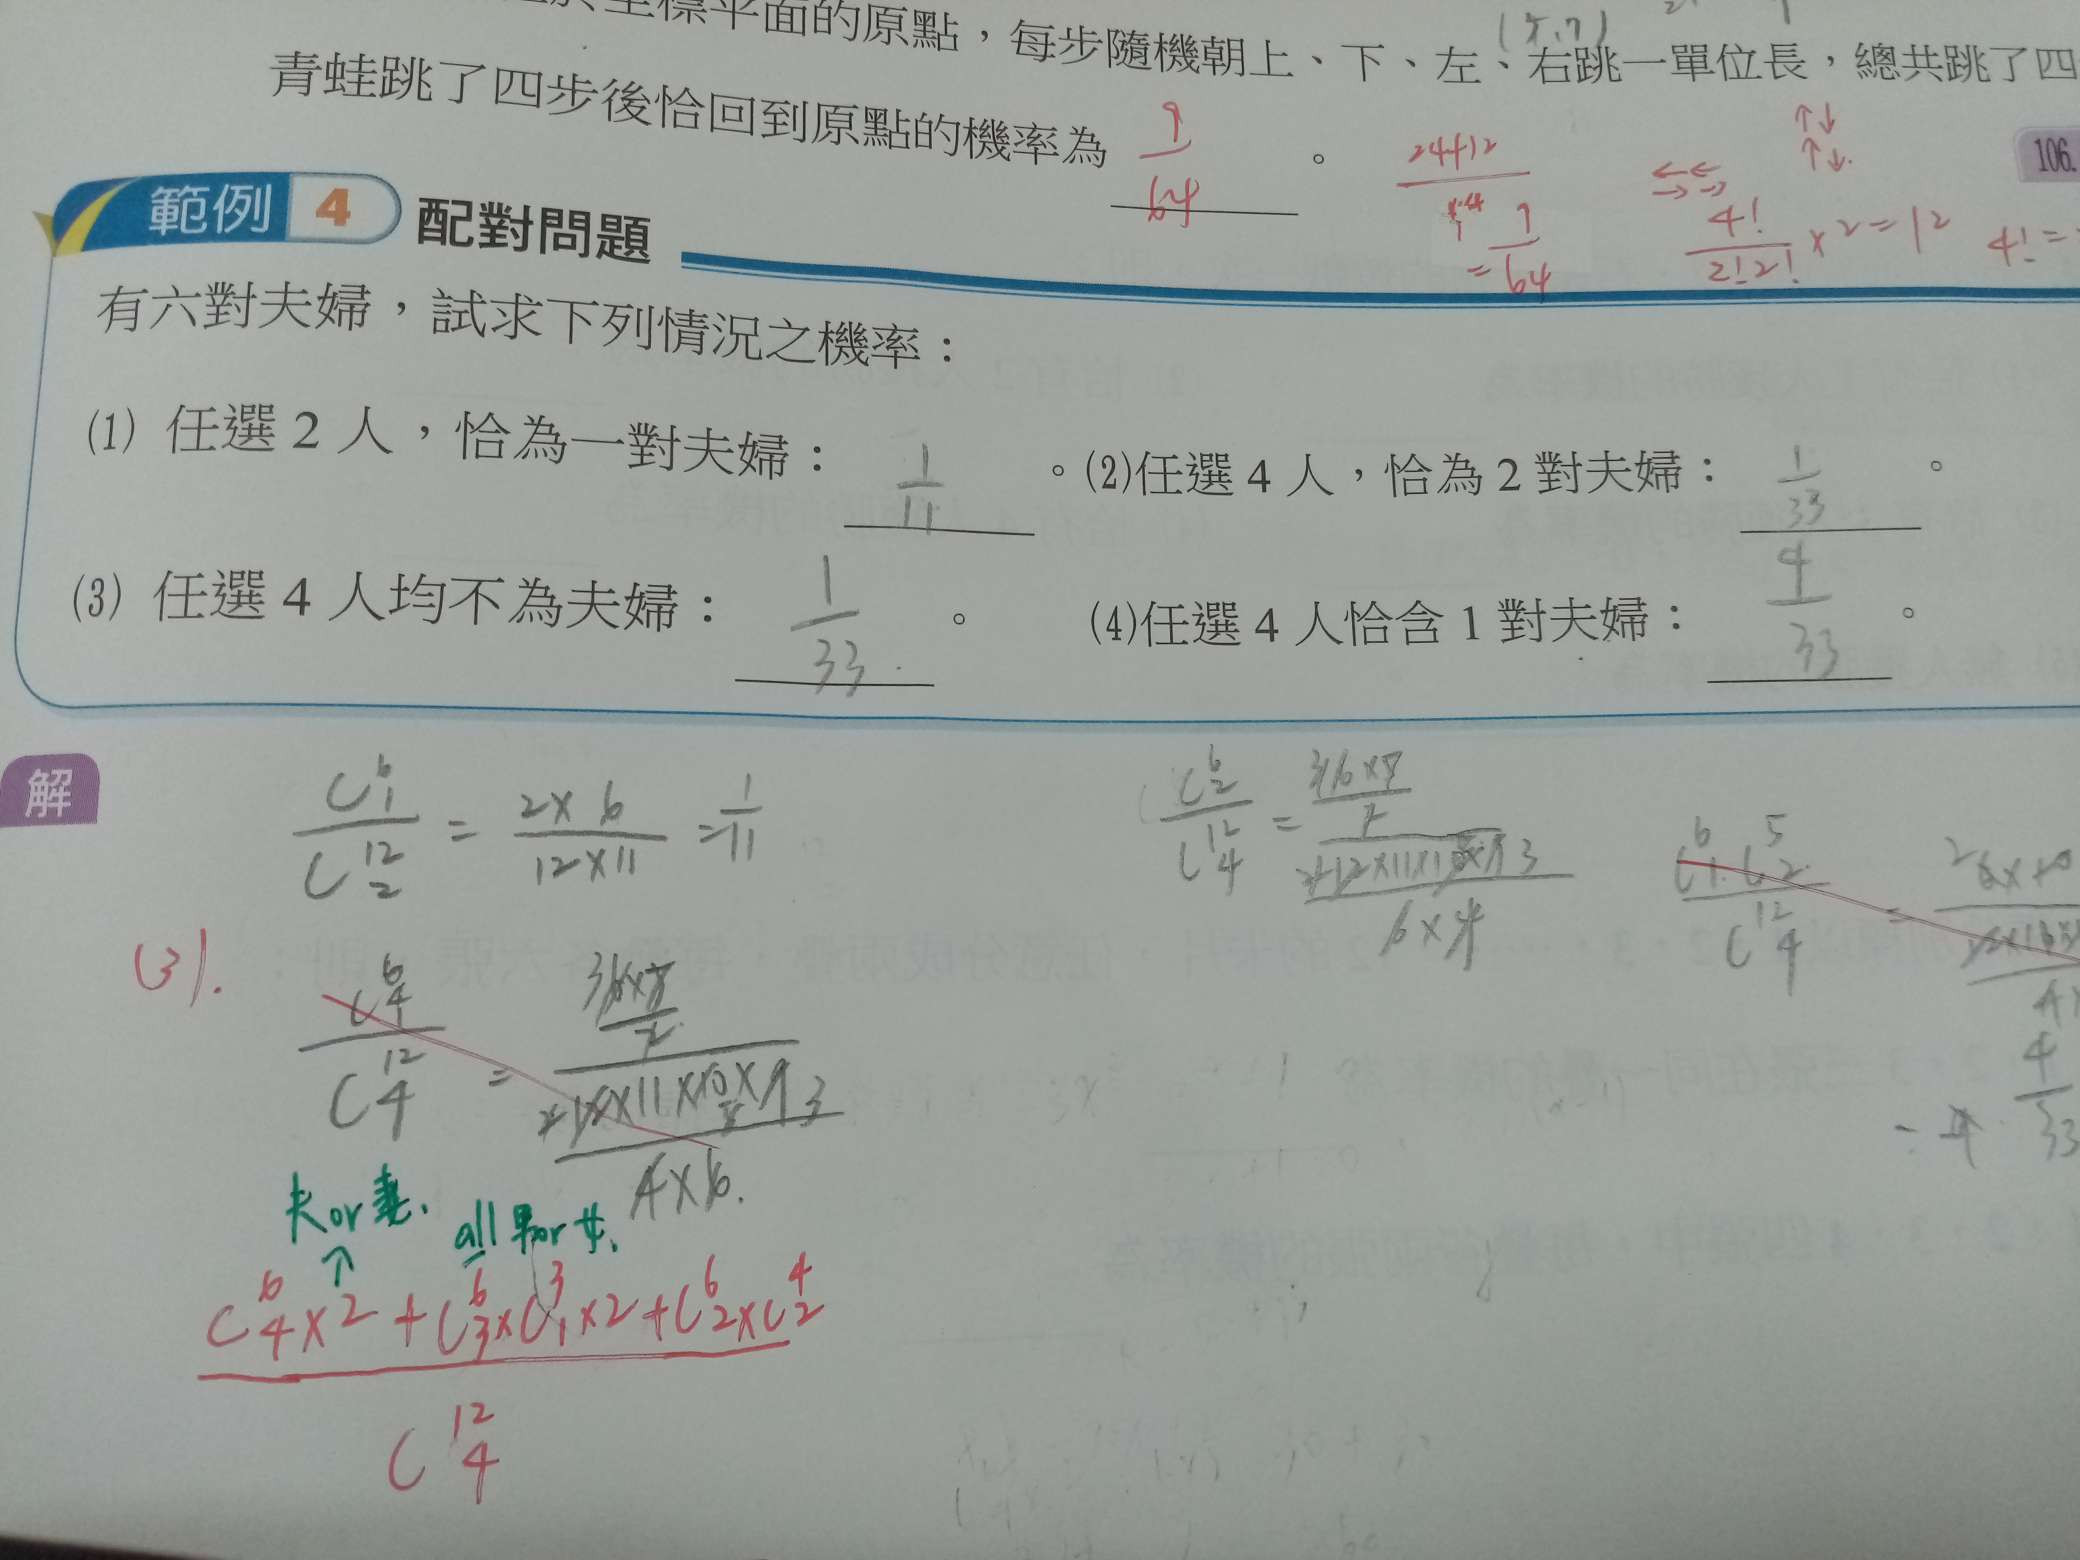 坐標平面的原點，每步隨機朝上、下、左、右跳一單位長，總共跳了四
青蛙跳了四步後恰回到原點的機率為 9/64 。
(24+12)/ = 9/64
↑↓
↑↓.
←←
→→
4!/(2!2!) × 2 = 12
4! =
106.
範例 4 配對問題
有六對夫婦，試求下列情況之機率：
(1) 任選 2 人，恰為一對夫婦： 1/11 。(2)任選 4 人，恰為 2 對夫婦： 1/33 。
(3) 任選 4 人均不為夫婦： 1/33 。 (4)任選 4 人恰含 1 對夫婦： 4/33 。
解
C^6_1 / C^12_2 = (2×6)/(12×11) = 1/11
C^6_2 / C^12_4 =
C^6_1 . C^5_2 / C^12_4 =
4/33
(3).
C^6_4 / C^12_4 =
夫or妻. all 男or女.
C^6_4×2 + C^6_3×C^3_1×2 + C^6_2×C^4_2
C^12_4